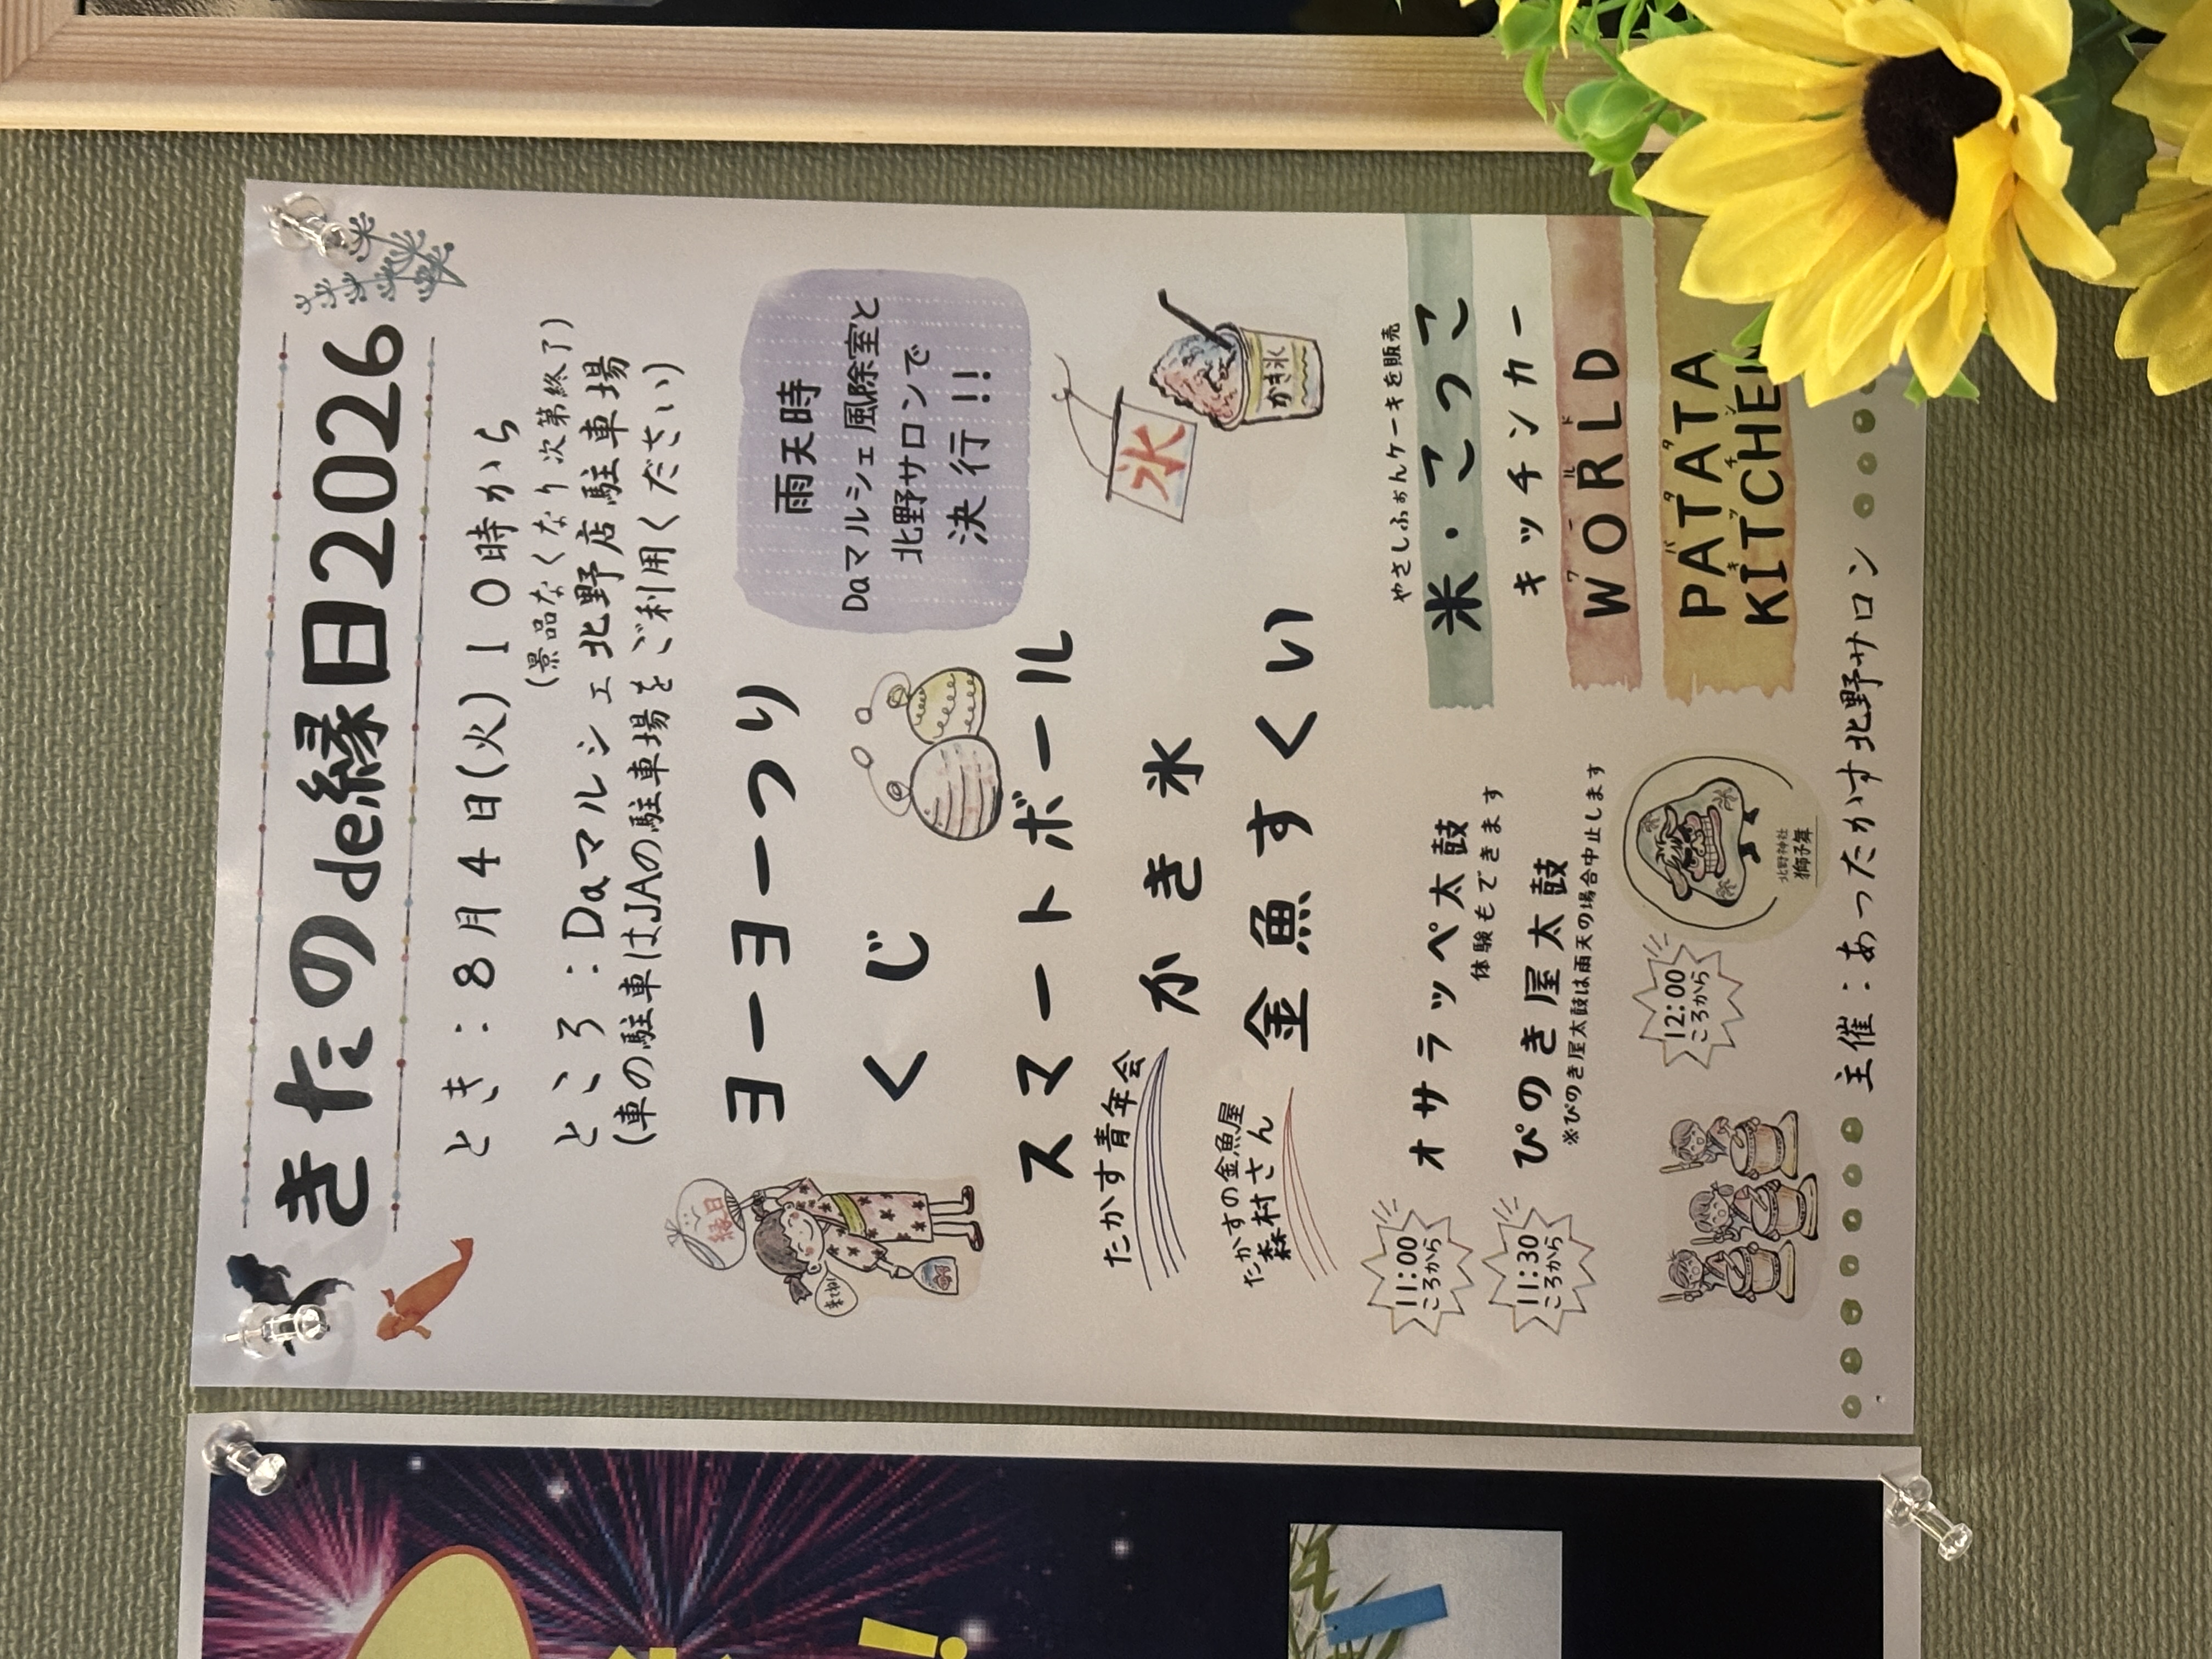 きたのde縁日2026
とき：8月4日(火)10時から
(景品なくなり次第終了)
ところ：Daマルシェ北野店駐車場
(車の駐車はJAの駐車場をご利用ください)
縁日
ヨーヨーつり
くじ
スマートボール
雨天時
Daマルシェ風除室と
北野サロンで
決行!!
たかす青年会
かき氷
氷
かき氷
たかすの金魚屋
森村さん
金魚すくい
11:00
ころから
オサラッペ太鼓
体験もできます
11:30
ころから
ぴのき屋太鼓
※ぴのき屋太鼓は雨天の場合中止します
12:00
ころから
北野神社
獅子舞
やさしふぉんケーキを販売
米・こっこ
キッチンカー
ワールド
WORLD
パタタ
PATATA
キッチ
KITCHE
主催：あったかす北野サロン